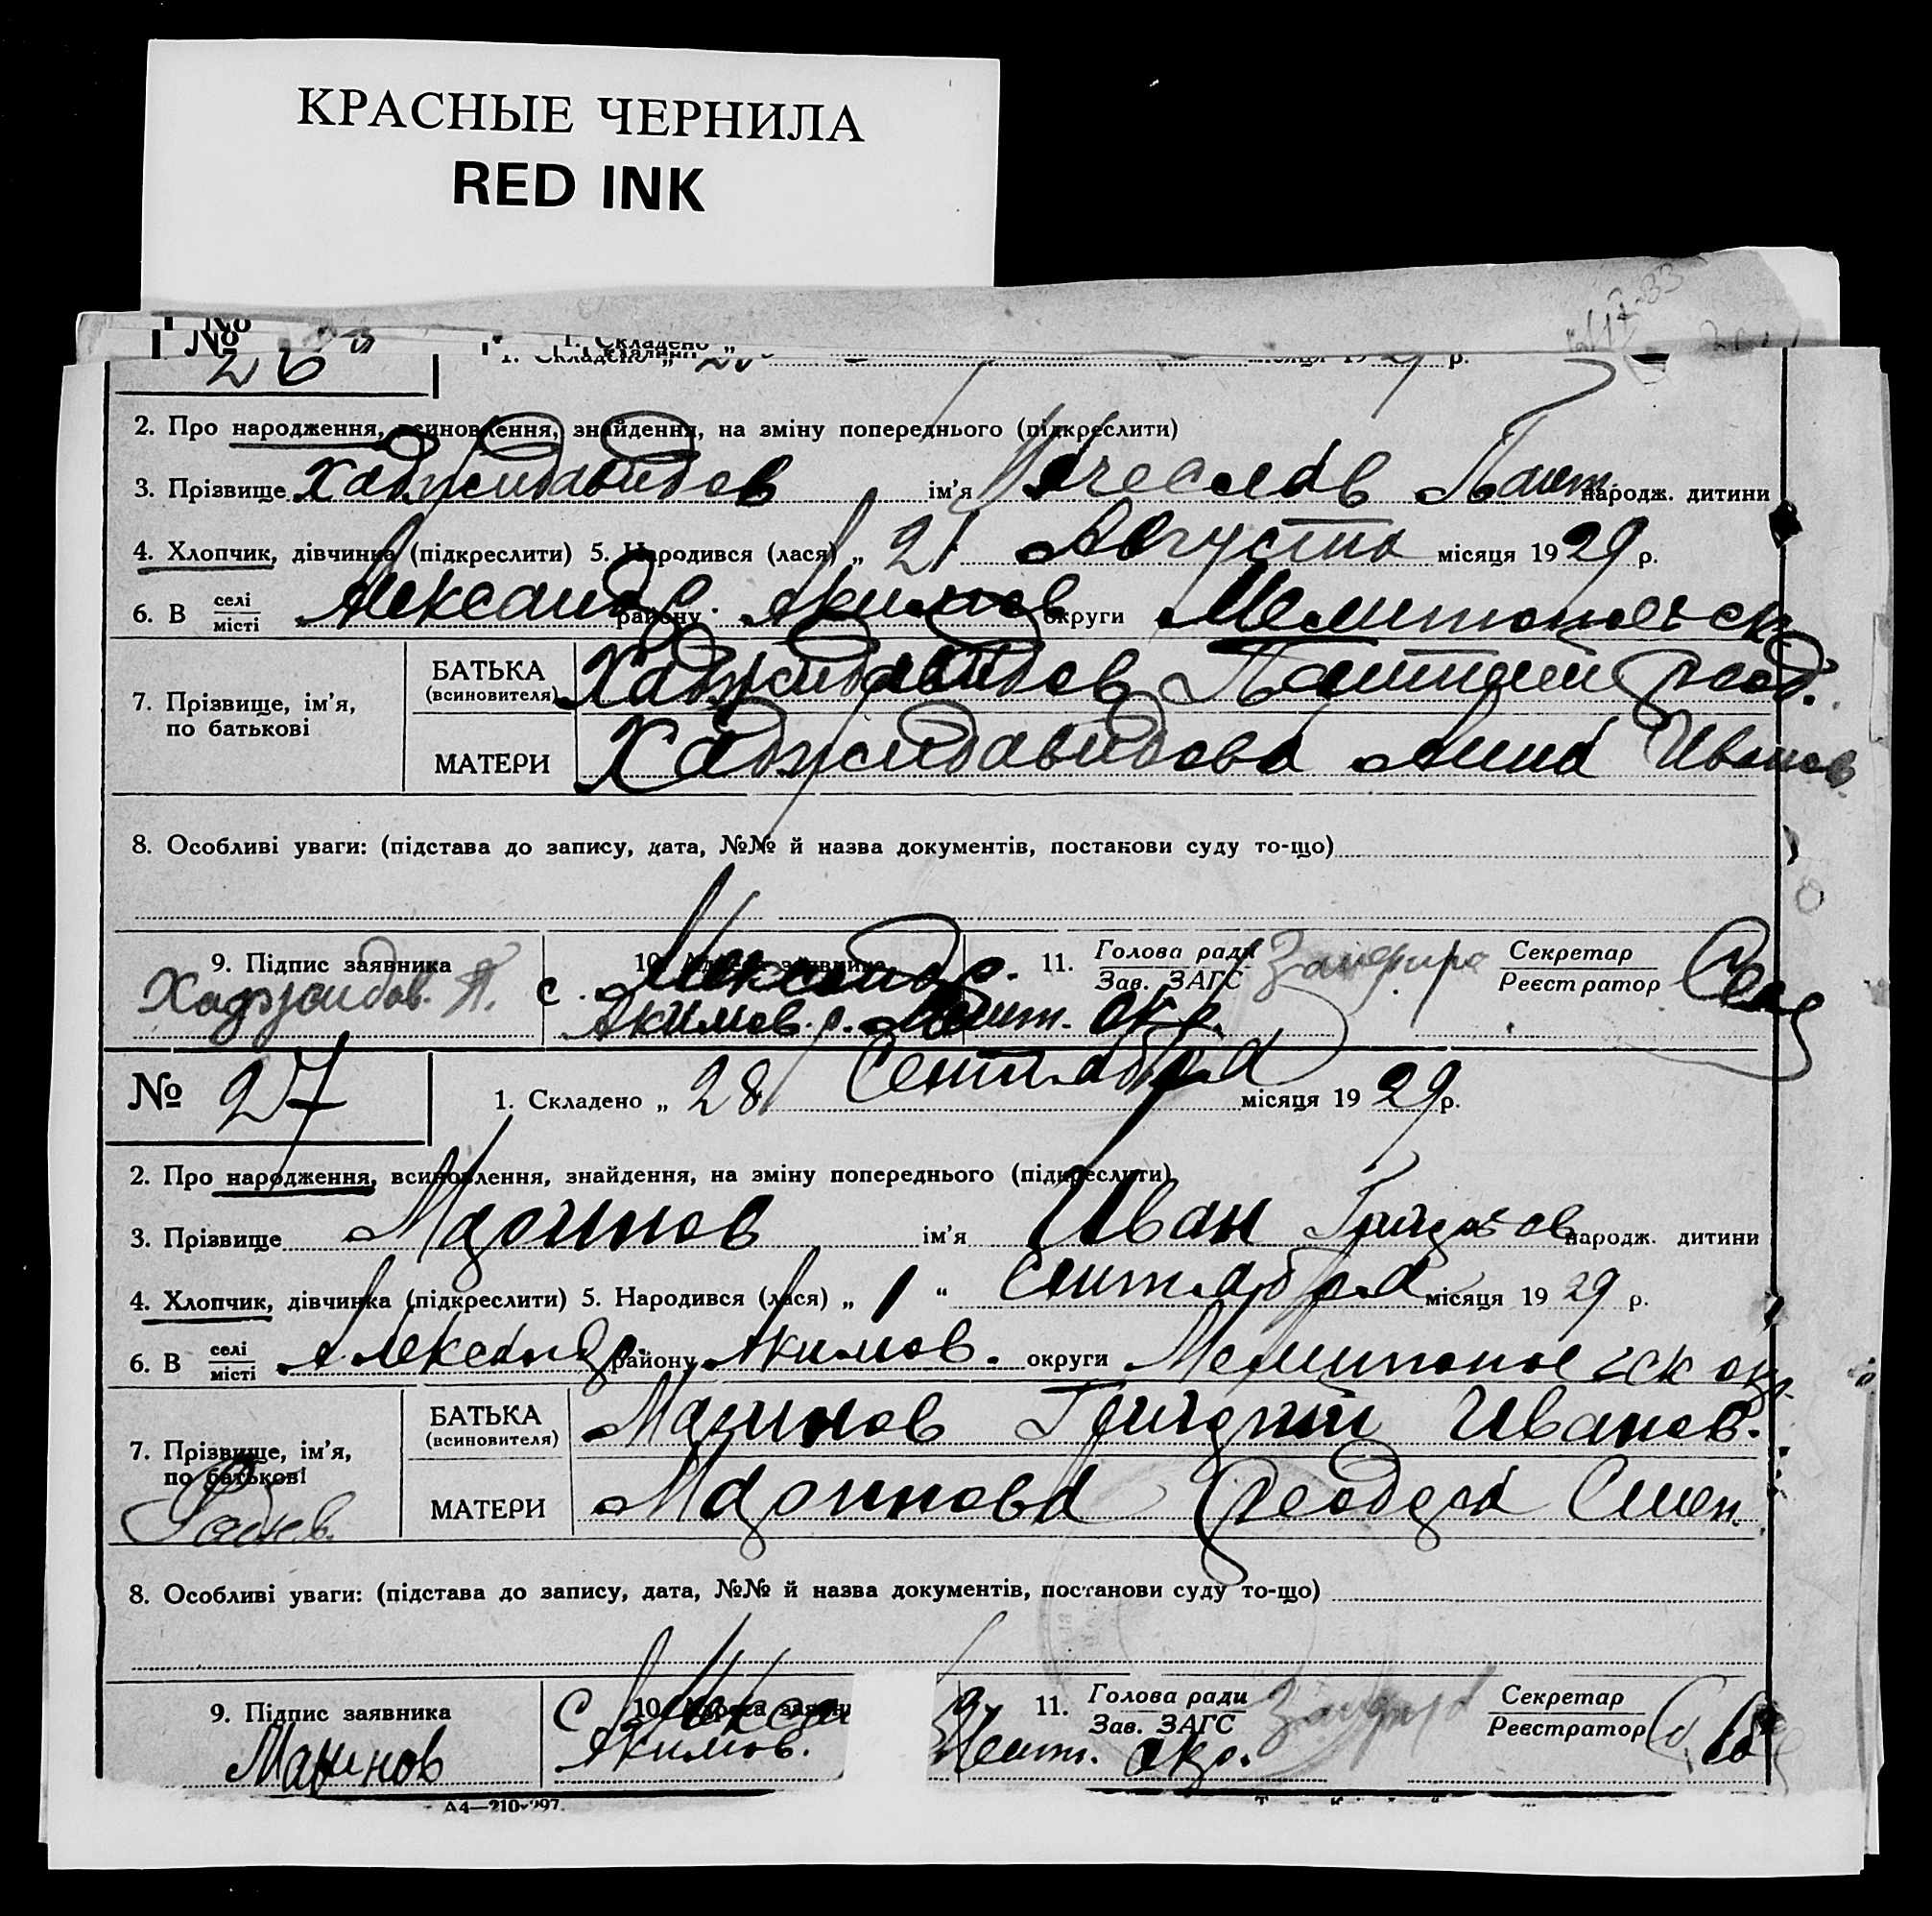 КРАСНЫЕ ЧЕРНИЛА
RED INK
№
№ 26
1. Складено „
1. Складено „ місяця 1929 р.
2. Про народження, всиновлення, знайдення, на зміну попереднього (підкреслити)
3. Прізвище Хаджидавидов ім'я Вячеслав Пант. народж. дитини
4. Хлопчик, дівчинка (підкреслити) 5. Народився (лася) „ 21 Августа місяця 1929 р.
6. В селі місті Александр. району Акимов округи Мелитопольск
7. Прізвище, ім'я, по батькові
БАТЬКА (всиновителя) Хаджидавидов Пантелей Феод.
МАТЕРИ Хаджидавидова Анна Иванов.
8. Особливі уваги: (підстава до запису, дата, №№ й назва документів, постанови суду то-що)
9. Підпис заявника 10. Адреса заявника 11. Голова ради Зав. ЗАГС Секретар Реєстратор
Хаджидов. П. с. Александр. Акимов. р. Мелит. окр.
№ 27 1. Складено „ 28 Сентября місяця 1929 р.
2. Про народження, всиновлення, знайдення, на зміну попереднього (підкреслити)
3. Прізвище Маринов ім'я Иван Григорьев народж. дитини
4. Хлопчик, дівчинка (підкреслити) 5. Народився (лася) „ 1 “ Сентября місяця 1929 р.
6. В селі місті Александр. району Акимов. округи Мелитопольск окр.
7. Прізвище, ім'я, по батькові
БАТЬКА (всиновителя) Маринов Григорий Иванов.
МАТЕРИ Маринова Феодора Симен.
8. Особливі уваги: (підстава до запису, дата, №№ й назва документів, постанови суду то-що)
9. Підпис заявника 10. Адреса заявни 11. Голова ради Зав. ЗАГС Секретар Реєстратор
Маринов С Алекса Акимов. Мелит. окр.
А4—210×297